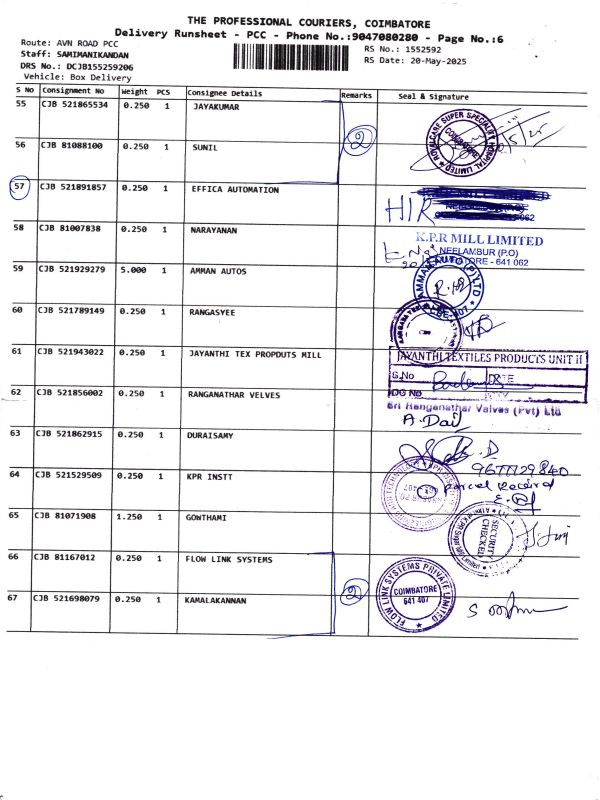 THE PROFESSIONAL COURIERS, COIMBATORE
Delivery Runsheet - PCC - Phone No.:9047080280 - Page No.:6
Route: AVN ROAD PCC
RS No.: 1552592
Staff: SAMIMANIKANDAN
RS Date: 20-May-2025
DRS No.: DCJB155259206
Vehicle: Box Delivery
S No Consignment No Weight PCS Consignee Details Remarks Seal & Signature
55 CJB 521865534 0.250 1 JAYAKUMAR
ROYALCARE SUPER SPECIALITY HOSPITAL LIMITED
COIMBATORE
2
56 CJB 81088100 0.250 1 SUNIL
57 CJB 521891857 0.250 1 EFFICA AUTOMATION
HIR
58 CJB 81007838 0.250 1 NARAYANAN
K.P.R MILL LIMITED
NEELAMBUR (P.O)
641 062
59 CJB 521929279 5.000 1 AMMAN AUTOS
AMMAN AUTO (P) LTD
CBE-407
60 CJB 521789149 0.250 1 RANGASYEE
61 CJB 521943022 0.250 1 JAYANTHI TEX PROPDUTS MILL
JAYANTHI TEXTILES PRODUCTS UNIT II
G.No
DATE
62 CJB 521856002 0.250 1 RANGANATHAR VELVES
Sri Ranganathar Valves (Pvt) Ltd
63 CJB 521862915 0.250 1 DURAISAMY
9677129840
64 CJB 521529509 0.250 1 KPR INSTT
parcel Received
65 CJB 81071908 1.250 1 GOWTHAMI
SECURITY
CHECKED
66 CJB 81167012 0.250 1 FLOW LINK SYSTEMS
FLOW LINK SYSTEMS PRIVATE LIMITED
COIMBATORE
641 407
2
67 CJB 521698079 0.250 1 KAMALAKANNAN